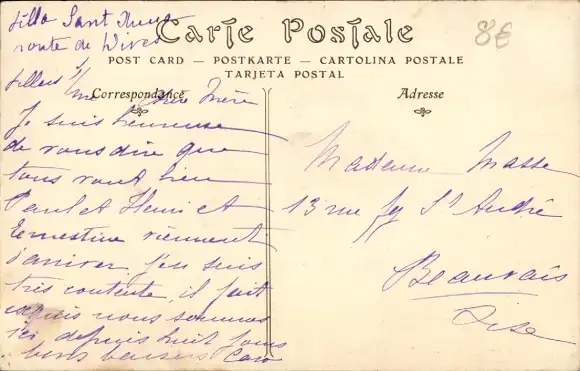 villa Sant
route de
Carte Postale
8€
POST CARD — POSTKARTE — CARTOLINA POSTALE
TARJETA POSTAL
Villers s/
Correspondance
Adresse
Chère Mère
Je suis heureuse
de vous dire que
tous vont bien
Paul et Henri et
Ernestine viennent
d'arriver j'en suis
très contente il fait
exquis nous sommes
ici depuis huit jours
bons baisers Caro
Madame Masse
13 rue fg St André
Beauvais
Oise